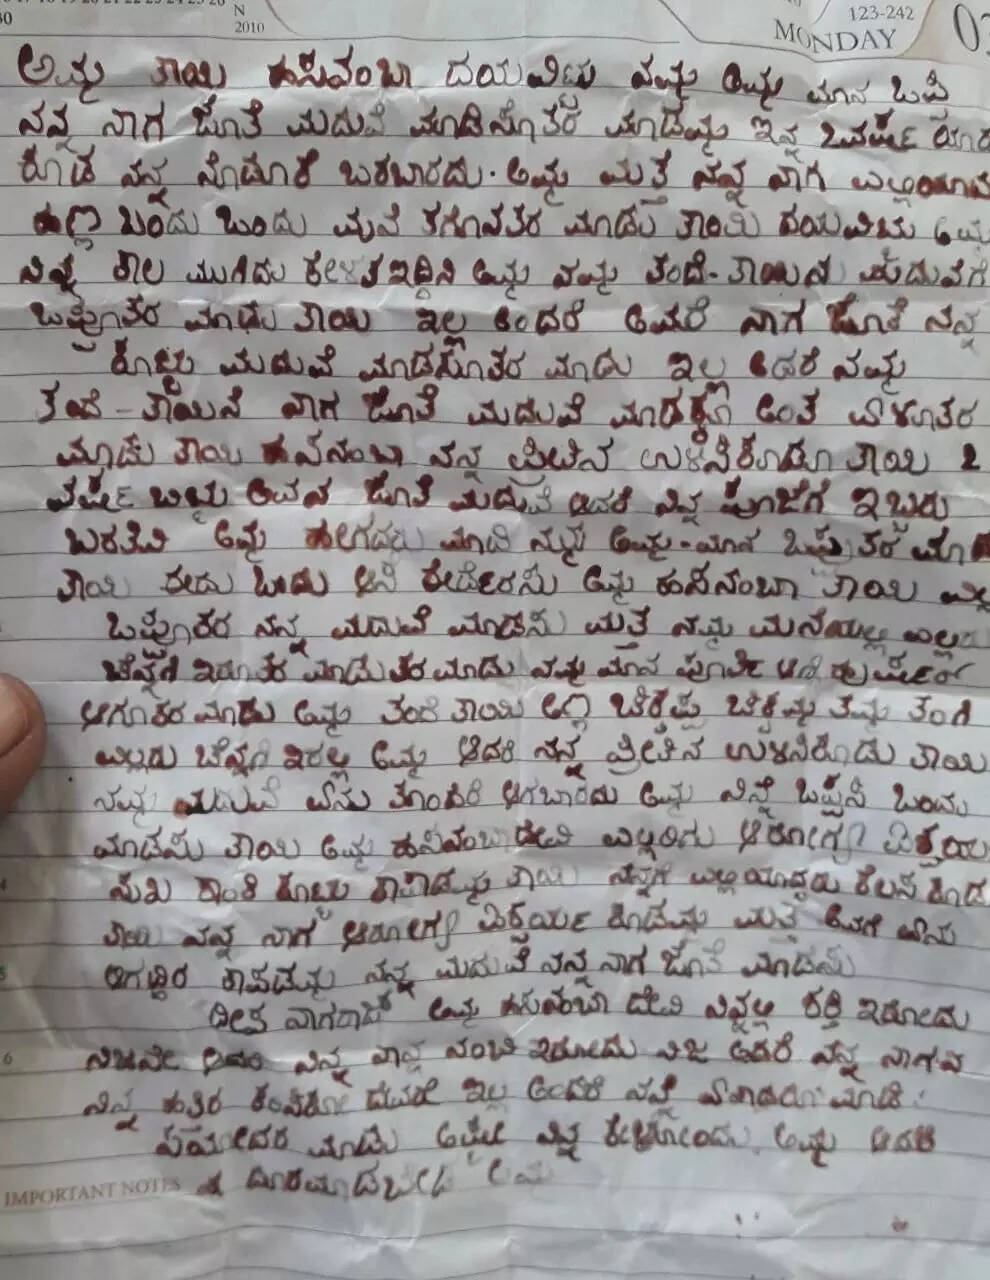 N
2010
123-242
MONDAY
ಅಮ್ಮ ತಾಯಿ ಹಸಿನಂಬಾ ದಯವಿಟ್ಟು ನಮ್ಮ ಅಮ್ಮ ಮಾವ ಒಪ್ಪಿ
ನನ್ನ ನಾಗ ಜೊತೆ ಮದುವೆ ಮಾಡಿಸೋತರ ಮಾಡಮ್ಮ ಇನ್ನ 2 ವರ್ಷ ಯಾರ
ಕೂಡ ನನ್ನ ನೊಡೂಕೆ ಬರಬಾರದು. ಅಮ್ಮ ಮತ್ತೆ ನನ್ನ ನಾಗ ಎಲ್ಲಿಯಾದ
ಹಣ ಬಂದು ಒಂದು ಮನೆ ತಗೂವತರ ಮಾಡು ತಾಯಿ ದಯವಿಟ್ಟು ಅಮ್ಮ
ನಿನ್ನ ಕಾಲ ಮುಗಿದು ಕೇಳತಇದ್ದಿನಿ ಅಮ್ಮ ನಮ್ಮ ತಂದೆ-ತಾಯಿನ ಮದುವೆಗೆ
ಒಪ್ಪೊತರ ಮಾಡು ತಾಯಿ ಇಲ್ಲ ಅಂದರೆ ಅವರೆ ನಾಗ ಜೊತೆ ನನ್ನ
ಕೊಟ್ಟು ಮದುವೆ ಮಾಡಸೊತರ ಮಾಡು ಇಲ್ಲ ಅಂದರೆ ನಮ್ಮ
ತಂದೆ - ತಾಯಿನೆ ನಾಗ ಜೊತೆ ಮದುವೆ ಮಾಡಕ್ಕೊ ಅಂತ ಏಳೂತರ
ಮಾಡು ತಾಯಿ ಹಸನಂಬಾ ನನ್ನ ಪ್ರೀತಿನ ಉಳಿಸಿಕೂಡೂ ತಾಯಿ 2
ವರ್ಷ ಬಿಟ್ಟು ಅವನ ಜೊತೆ ಮದುವೆ ಆದರೆ ನಿನ್ನ ಪೂಜೆಗೆ ಇಬ್ಬರು
ಬರತಿವಿ ಅಮ್ಮ ಹೇಗದರು ಮಾಡಿ ನಮ್ಮ ಅಮ್ಮ-ಮಾವ ಒಪ್ಪುತರ ಮಾಡು
ತಾಯಿ ಇದು ಒಂದು ಆಸೆ ಈಡೇರಸು ಅಮ್ಮ ಹಸಿನಂಬಾ ತಾಯಿ ಎಲ್ಲ
ಒಪ್ಪೊತರ ನನ್ನ ಮದುವೆ ಮಾಡಸು ಮತ್ತೆ ನಮ್ಮ ಮನೆಯಲ್ಲಿ ಎಲ್ಲರು
ಚೆನ್ನಗಿ ಇರೂತರ ಮಾಡುತರ ಮಾಡು ನಮ್ಮ ಮಾವ ಪೂರ್ತಿ
ಆಗೂತರ ಮಾಡು ಅಮ್ಮ ತಂದೆ ತಾಯಿ ಅಣ್ಣ ಚಿಕ್ಕಪ್ಪ ಚಿಕ್ಕಮ್ಮ ತಮ್ಮ ತಂಗಿ
ಎಲ್ಲರು ಚೆನ್ನಗಿ ಇರಲ್ಲಿ ಅಮ್ಮ ಆದರೆ ನನ್ನ ಪ್ರೀತಿನ ಉಳಿಸಿಕೊಡು ತಾಯಿ
ನಮ್ಮ ಮದುವೆ ಏನು ತೊಂದರೆ ಆಗಬಾರದು ಅಮ್ಮ ನಿನ್ನೆ ಒಪ್ಪಿಸಿ ಬಂದು
ಮಾಡಸು ತಾಯಿ ಅಮ್ಮ ಹಸಿನಂಬಾದೇವಿ ಎಲ್ಲರಿಗು ಆರೋಗ್ಯ ಐಶ್ವರ್ಯ
ಸುಖ ಶಾಂತಿ ಕೊಟ್ಟು ಕಾಪಾಡಮ್ಮ ತಾಯಿ ನನ್ನಗೆ ಎಲ್ಲಿಯಾದ್ದರು ಕೆಲಸ ಕೊಡ
ತಾಯಿ ನನ್ನ ನಾಗ ಆರೋಗ್ಯ ಐಶ್ವರ್ಯ ಕೊಡಮ್ಮ ಮತ್ತೆ ಅವಗೆ ಏನು
ಆಗದ್ದಿರ ಕಾಪಾಡಮ್ಮ ನನ್ನ ಮದುವೆ ನನ್ನ ನಾಗ ಜೊತೆ ಮಾಡಸು
ನಾಗರಾಜ್ ಅಮ್ಮ ಹಸಿನಂಬಾ ದೇವಿ ನಿನ್ನಲ್ಲಿ ಶಕ್ತಿ ಇರೋದು
ನಿಜನೇ ಆದರೆ ನಿನ್ನ ನಾನ್ನ ನಂಬಿ ಇರೋದು ನಿಜ ಆದರೆ ನನ್ನ ನಾಗನ
ನಿನ್ನ ಹತ್ತಿರ ಇಲ್ಲ ಅಂದರೆ ನನ್ನೆ
ಮಾಡು ಅಂತ ನಿನ್ನ ಕೇಳಕೋಂಡು ಅಮ್ಮ ಆದರೆ
IMPORTANT NOTES ದೂರಮಾಡಬೇಡ ಅಮ್ಮ
6